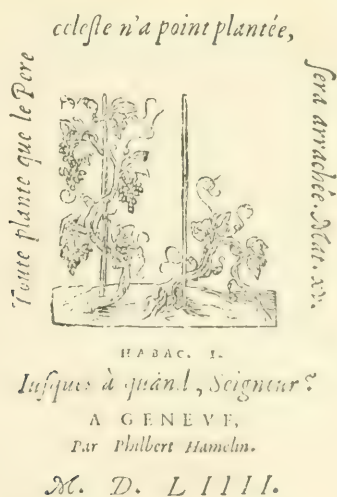 Toute plante que le Pere
celeſte n'a point plantée,
ſera arrachée. Mat. xv.
HABAC. I.
Iuſques à quand, Seigneur?
A GENEVE,
Par Philbert Hamelin.
M. D. LIIII.